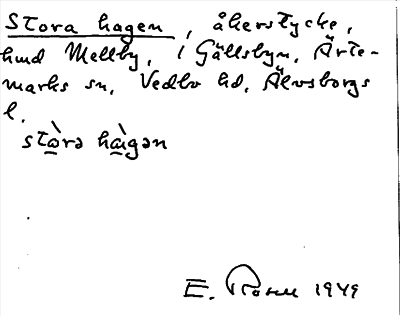 Stora hagen, åkerstycke,
hmd Mellby, i Gällsbyn, Ärte-
marks sn, Vedbo hd, Älvsborgs
l.
stòrə hàigən
E. 1949